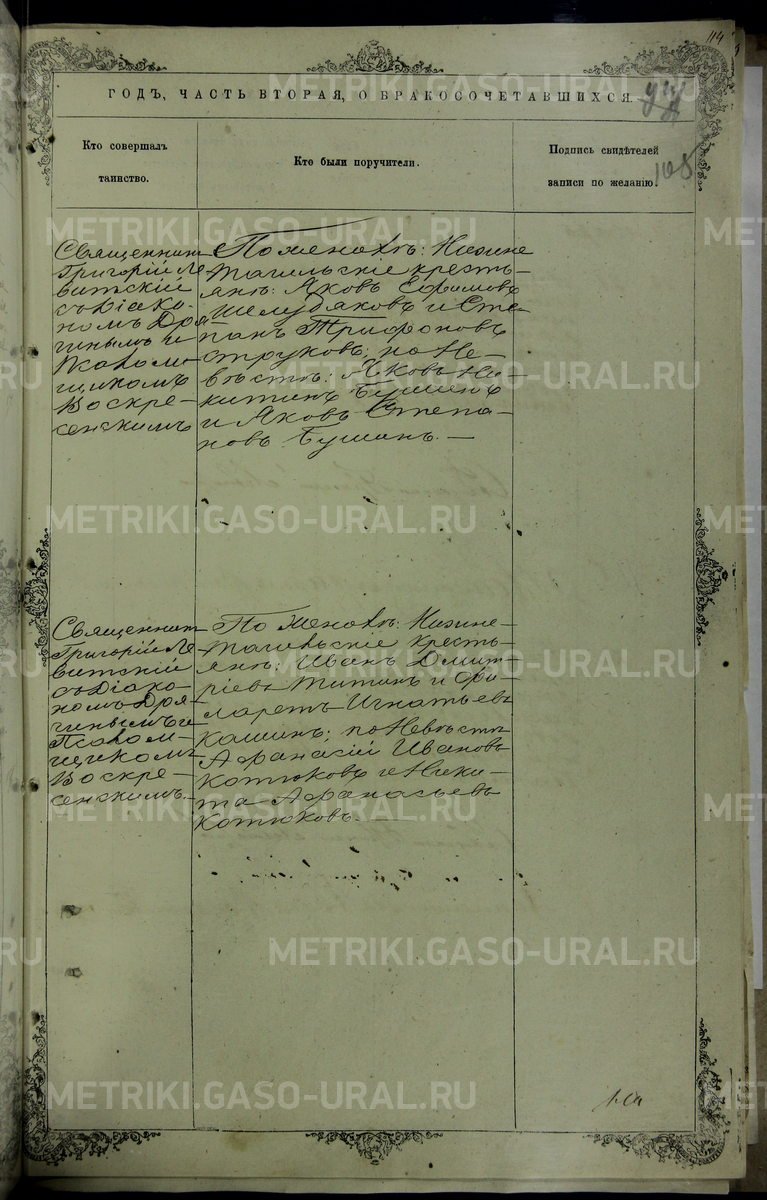 114
ГОДЪ, ЧАСТЬ ВТОРАЯ, О БРАКОСОЧЕТАВШИХСЯ.
Кто совершалъ
таинство.
Кто были поручители.
Подпись свидѣтелей
записи по желанію.
108
Священникъ
Григорій Ле-
витскій
съ Діако-
номъ Дря-
гинымъ и
Псалом-
щикомъ
Воскре-
сенскимъ
По женихѣ: Нижне
Тагильскіе кресть-
яне: Яковъ Ефимовъ
Шелудяковъ и Сте-
панъ Трифоновъ
Струковъ; по Не-
вѣстѣ: Яковъ Ни-
китинъ Бушинъ
и Яковъ Степа-
новъ Бушинъ. —
Священникъ
Григорій Ле-
витскій
съ Діако-
номъ Дря-
гинымъ и
Псалом-
щикомъ
Воскре-
сенскимъ.
По Женихѣ: Нижне-
Тагильскіе кресть-
яне: Иванъ Дмит-
ріевъ Титинъ и Фи-
ларетъ Игнатьевъ
Кашинъ; по Невѣстѣ
Афанасій Ивановъ
Котюковъ и Ники-
та Афанасьевъ
Котюковъ. —
METRIKI.GASO-URAL.RU